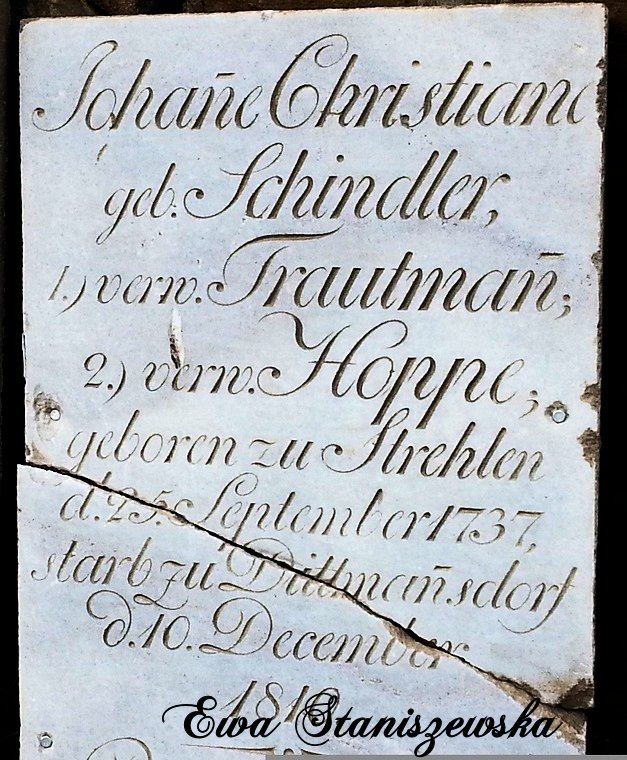 Johañe Christiane
geb. Schindler,
1.) verw. Trautmañ;
2.) verw. Hoppe;
geboren zu Strehlen
d. 25. September 1737,
starb zu Dittmañsdorf
d. 10. December
Ewa Staniszewska